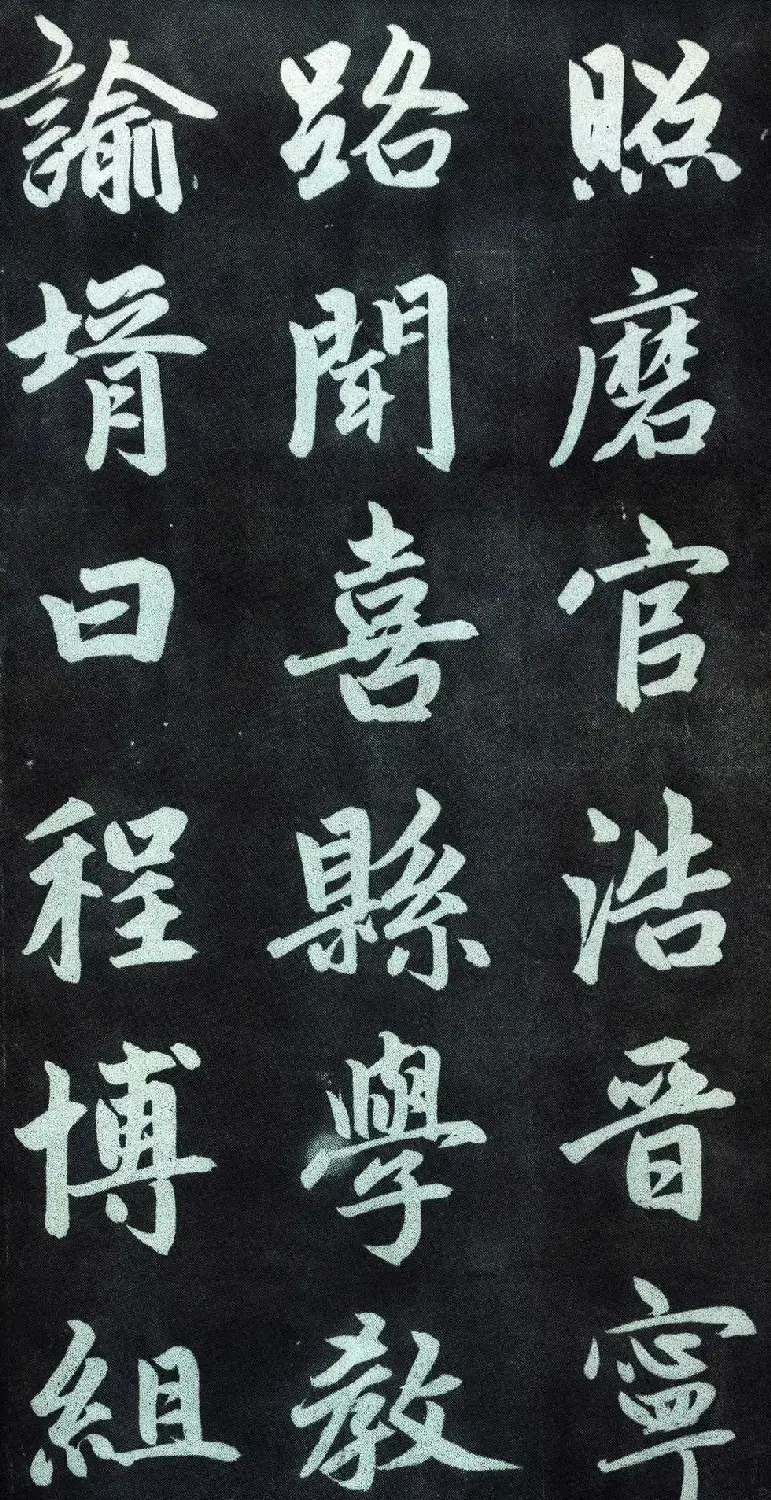 照磨官浩晉寧
路聞喜縣學教
諭壻曰程博組